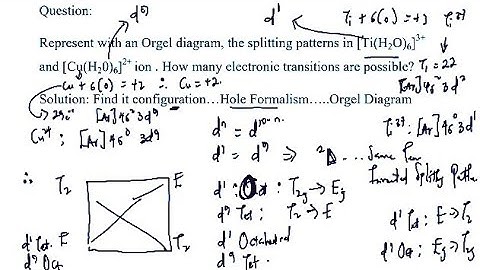 Question:
d⁹
d¹
Ti + 6(0) = +3
Ti³⁺
Represent with an Orgel diagram, the splitting patterns in [Ti(H₂O)₆]³⁺
and [Cu(H₂0)₆]²⁺ ion . How many electronic transitions are possible?
Ti = 22
Cu + 6(0) = +2 ∴ Cu = +2
[Ar] 4s² 3d²
Solution: Find it configuration…Hole Formalism…..Orgel Diagram
29e⁻ [Ar] 4s⁰ 3d⁹
Cu²⁺ ; [Ar] 4s⁰ 3d⁹
dⁿ = d¹⁰⁻ⁿ
Ti³⁺: [Ar] 4s⁰ 3d¹
d¹ = d⁹ ⇒ ²D … Same
Inverted Splitting
∴ T₂ E
d¹ : Oct : T₂g → Eg
d⁹ Tet : T₂ → E
d¹ Tet : E → T₂
d¹ Tet. E T₂
d¹ Octahedral
d⁹ Oct : Eg → T₂g
d⁹ Oct
d⁹ Tet.